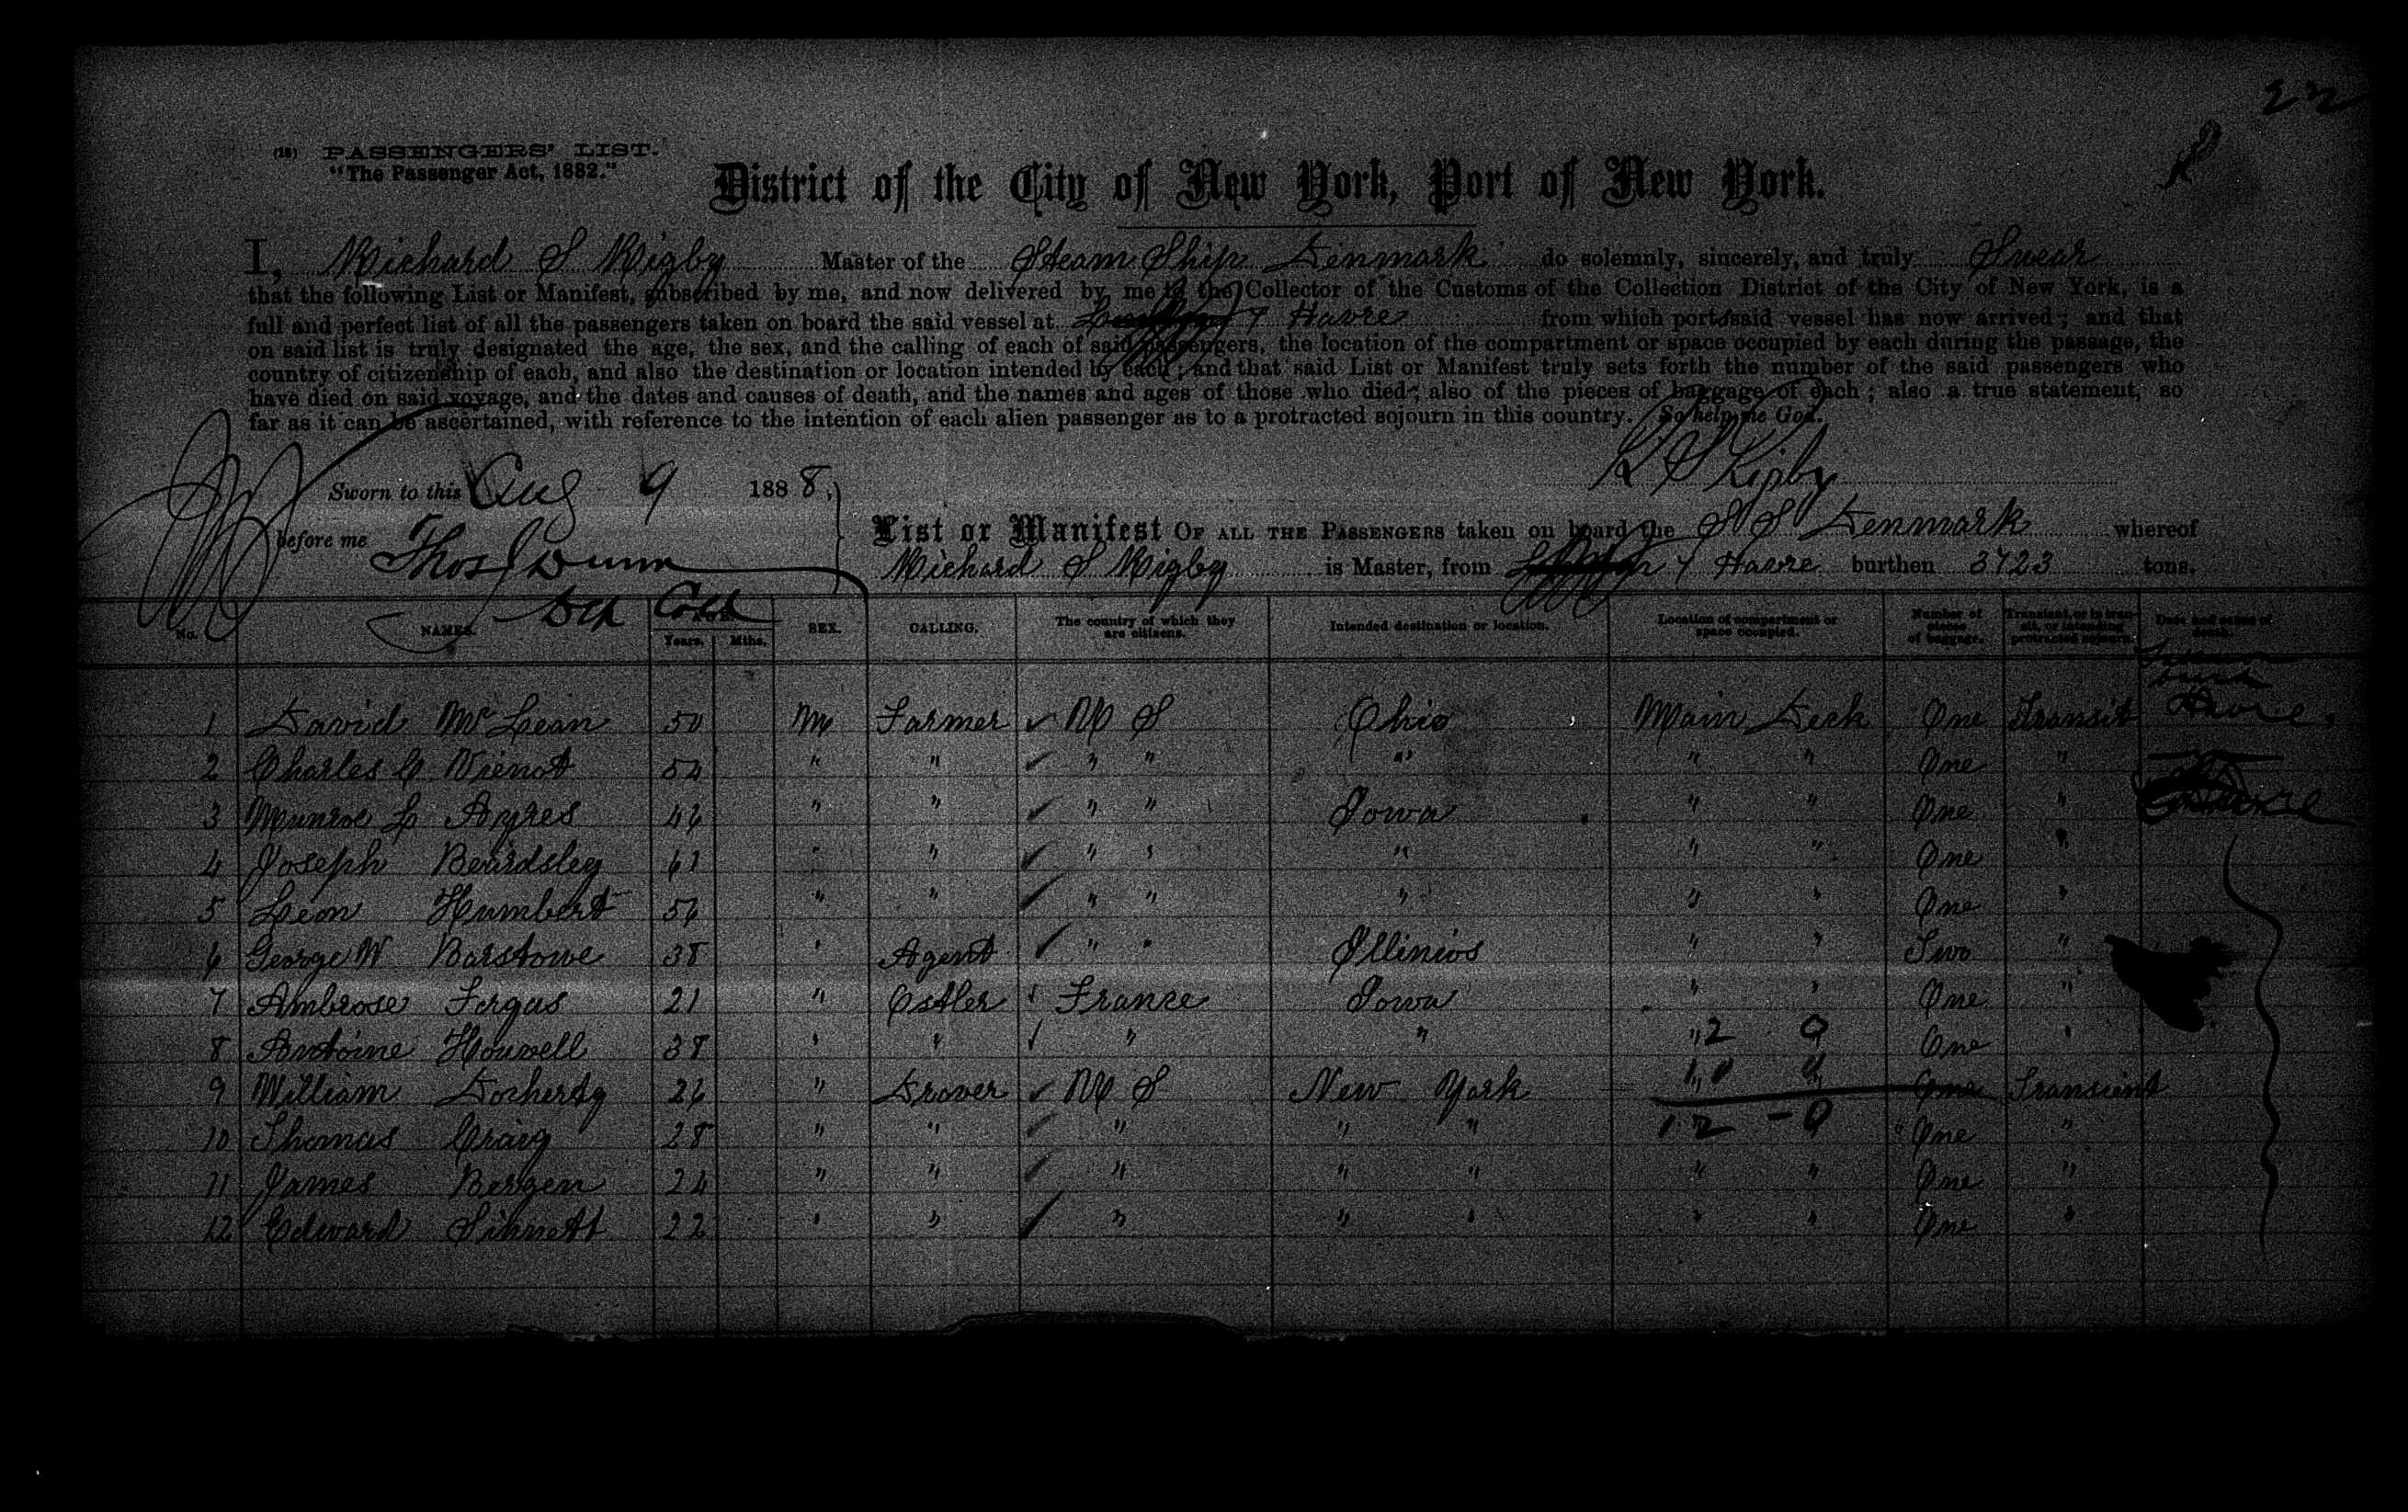 22
(18) PASSENGERS' LIST.
"The Passenger Act, 1882."
District of the City of New York, Port of New York.
I, Richard S Rigby Master of the Steam Ship Denmark do solemnly, sincerely, and truly Swear
that the following List or Manifest, subscribed by me, and now delivered by me to the Collector of the Customs of the Collection District of the City of New York, is a
full and perfect list of all the passengers taken on board the said vessel at Havre from which ports said vessel has now arrived; and that
on said list is truly designated the age, the sex, and the calling of each of said passengers, the location of the compartment or space occupied by each during the passage, the
country of citizenship of each, and also the destination or location intended by each; and that said List or Manifest truly sets forth the number of the said passengers who
have died on said voyage, and the dates and causes of death, and the names and ages of those who died; also of the pieces of baggage of each; also a true statement, so
far as it can be ascertained, with reference to the intention of each alien passenger as to a protracted sojourn in this country. So help me God.
R S Rigby
Sworn to this Aug 9 1888.
before me Thos J Dunn
Dep Coll
List or Manifest OF ALL THE PASSENGERS taken on board the S S Denmark whereof
Richard S Rigby is Master, from Havre burthen 3723 tons.
No. NAMES. Years. Mths. SEX. CALLING. The country of which they are citizens. Intended destination or location. Location of compartment or space occupied. Number of pieces of baggage. Transient, or in transit, or intending protracted sojourn. Date and cause of death.
1 David McLean 50 M Farmer U S Ohio Main Deck One Transit Havre.
2 Charles C Vienot 54 " " " " " " " One "
3 Munroe L Ayres 46 " " " " Iowa " " One "
4 Joseph Beardsley 61 " " " " " " " One "
5 Leon Humbert 56 " " " " " " " One "
6 George W Barstowe 38 " Agent " " Illinios " " Two "
7 Ambrose Fergus 21 " Ostler France Iowa " " One "
8 Antoine Houvell 38 " " " " " 2 0 One "
9 William Docherty 26 " Drover U S New York " 10 " One Transient
10 Thomas Craig 28 " " " " " 12 - 0 One "
11 James Bergen 24 " " " " " " " One "
12 Edward Sinnett 22 " " " " " " " One "